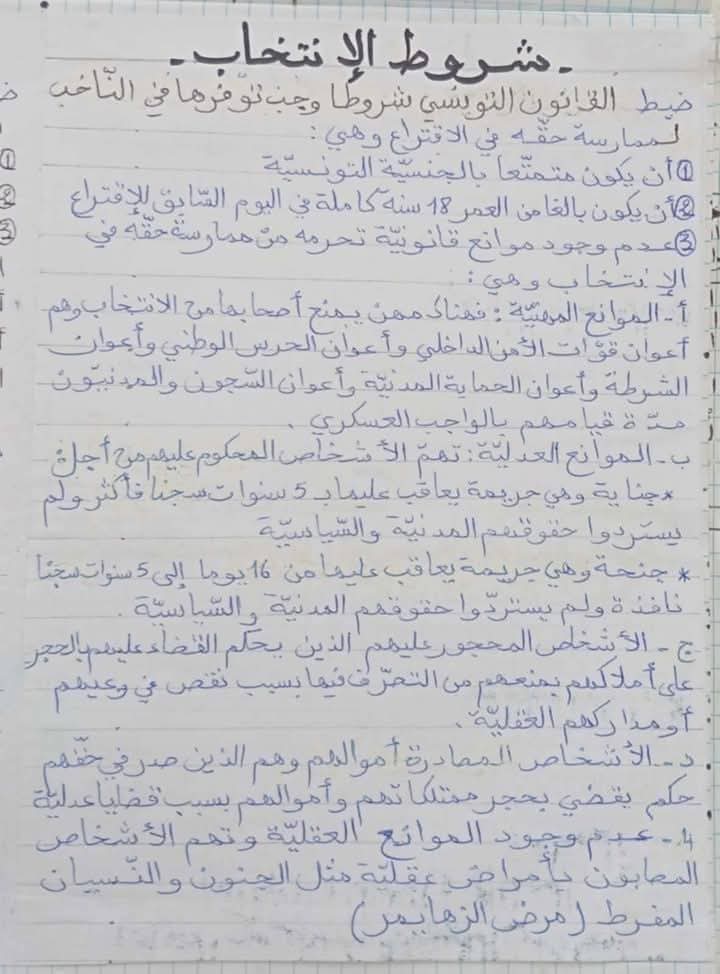 - شروط الإنتخاب -
ضبط القانون التونسي شروطا وجب توفرها في النّاخب
لممارسة حقّه في الاقتراع وهي :
① أن يكون متمتّعا بالجنسيّة التونسيّة
② أن يكون بالغا من العمر 18 سنة كاملة في اليوم السّابق للإقتراع
③ عدم وجود موانع قانونيّة تحرمه من ممارسة حقّه في
الإنتخاب وهي :
أ- الموانع المهنيّة : فهناك مهن يمنع أصحابها من الانتخاب وهم
أعوان قوّات الأمن الداخلي وأعوان الحرس الوطني وأعوان
الشرطة وأعوان الحماية المدنيّة وأعوان السّجون والمدنيّون
مدّة قيامهم بالواجب العسكري .
ب- الموانع العدليّة : تهمّ الأشخاص المحكوم عليهم من أجل
* جناية وهي جريمة يعاقب عليها بـ 5 سنوات سجنا فأكثر ولم
يستردوا حقوقهم المدنيّة والسّياسيّة
* جنحة وهي جريمة يعاقب عليها من 16 يوما إلى 5 سنوات سجنا
نافذة ولم يستردّوا حقوقهم المدنيّة والسّياسيّة .
ج - الأشخاص المحجور عليهم الذين يحكم القضاء عليهم بالحجر
على أملاكهم بمنعهم من التصرّف فيها بسبب نقص في وعيهم
أو مداركهم العقليّة .
د - الأشخاص المصادرة أموالهم وهم الذين صدر في حقّهم
حكم يقضي بحجر ممتلكاتهم وأموالهم بسبب قضايا عدليّة
4 - عدم وجود الموانع العقليّة وتهم الأشخاص
المصابون بأمراض عقليّة مثل الجنون والنّسيان
المفرط (مرض الزهايمر)